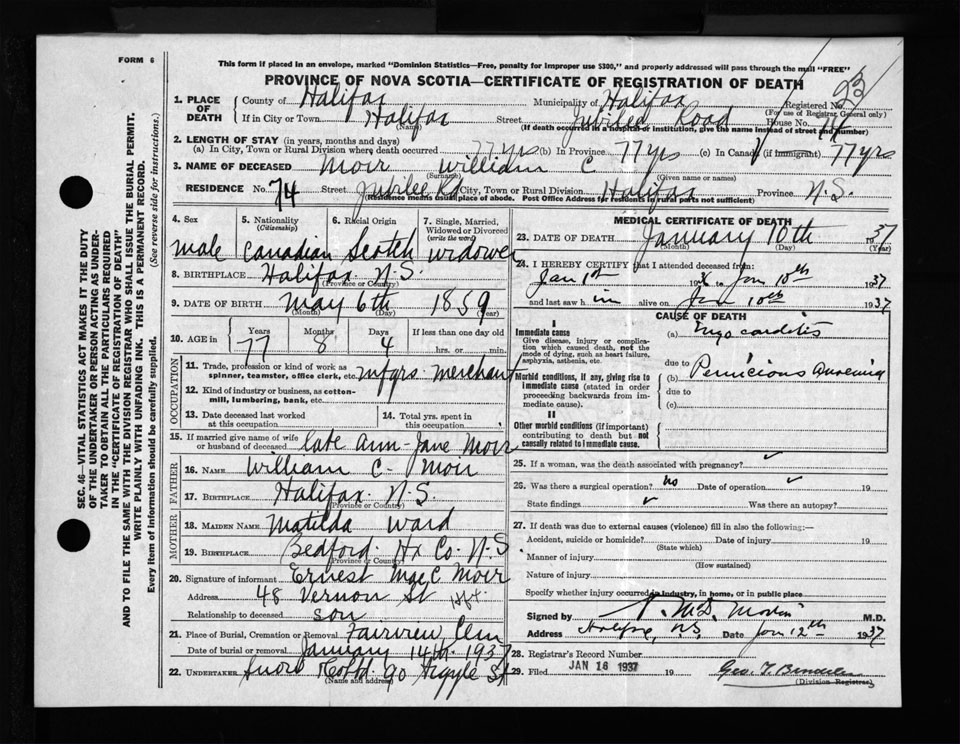 FORM 6
This form if placed in an envelope, marked "Dominion Statistics—Free, penalty for improper use $300," and properly addressed will pass through the mail "FREE"
PROVINCE OF NOVA SCOTIA—CERTIFICATE OF REGISTRATION OF DEATH
93
1. PLACE OF DEATH County of Halifax Municipality of Halifax Registered No.
(For use of Registrar General only)
If in City or Town Halifax Street Jubilee Road House No. 74
(Name) (If death occurred in a hospital or institution, give the name instead of street and number)
2. LENGTH OF STAY (in years, months and days)
(a) In City, Town or Rural Division where death occurred 77 yrs (b) In Province 77 yrs (c) In Canada (if immigrant) 77 yrs
3. NAME OF DECEASED Moir William C
(Surname) (Given name or names)
RESIDENCE No. 74 Street Jubilee Rd City, Town or Rural Division Halifax Province N.S.
(Residence means usual place of abode. Post Office Address for residents in rural parts not sufficient)
SEC. 46—VITAL STATISTICS ACT MAKES IT THE DUTY
OF THE UNDERTAKER OR PERSON ACTING AS UNDER-
TAKER TO OBTAIN ALL THE PARTICULARS REQUIRED
IN THE "CERTIFICATE OF REGISTRATION OF DEATH"
AND TO FILE THE SAME WITH THE DIVISION REGISTRAR WHO SHALL ISSUE THE BURIAL PERMIT.
WRITE PLAINLY WITH UNFADING INK. THIS IS A PERMANENT RECORD.
Every item of information should be carefully supplied. (See reverse side for instructions.)
4. Sex 5. Nationality 6. Racial Origin 7. Single, Married,
(Citizenship) Widowed or Divorced
(write the word)
male Canadian Scotch widower
8. BIRTHPLACE Halifax N.S.
(Province or Country)
9. DATE OF BIRTH May 6th 1859
(Month) (Day) (Year)
10. AGE in Years Months Days If less than one day old
77 8 4 hrs. or min.
OCCUPATION
11. Trade, profession or kind of work as
spinner, teamster, office clerk, etc. mfgrs. merchant
12. Kind of industry or business, as cotton-
mill, lumbering, bank, etc.
13. Date deceased last worked 14. Total yrs. spent in
at this occupation this occupation
15. If married give name of wife
or husband of deceased Late Ann Jane Moir
FATHER
16. NAME William C. Moir
17. BIRTHPLACE Halifax N.S.
(Province or Country)
MOTHER
18. MAIDEN NAME Matilda Ward
19. BIRTHPLACE Bedford Hx Co. N.S.
(Province or Country)
20. Signature of informant Ernest MacC Moir
Address 48 Vernon St Hfx.
Relationship to deceased son
21. Place of Burial, Cremation or Removal Fairview Cem
Date of burial or removal January 14th 1937
22. UNDERTAKER Snow & Co Ltd. 90 Argyle St
(Name and address)
MEDICAL CERTIFICATE OF DEATH
23. DATE OF DEATH January 10th 1937
(Month) (Day) (Year)
24. I HEREBY CERTIFY that I attended deceased from:
Jan 1st 19 to Jan 10th 1937
and last saw h im alive on Jan 10th 1937
CAUSE OF DEATH
I
Immediate cause (a) Myocarditis
Give disease, injury or complica-
tion which caused death, not the
mode of dying, such as heart failure,
asphyxia, asthenia, etc.
due to
Morbid conditions, if any, giving rise to
immediate cause (stated in order
proceeding backwards from im-
mediate cause).
(b) Pernicious Anaemia
due to
(c)
II
Other morbid conditions (if important)
contributing to death but not
causally related to immediate cause.
25. If a woman, was the death associated with pregnancy?
26. Was there a surgical operation? no Date of operation 19
State findings Was there an autopsy?
27. If death was due to external causes (violence) fill in also the following:—
Accident, suicide or homicide? Date of injury 19
(State which)
Manner of injury
(How sustained)
Nature of injury
Specify whether injury occurred in industry, in home, or in public place
Signed by M.D.
Address Halifax, N.S. Date Jan 12th 1937
28. Registrar's Record Number
29. Filed JAN 16 1937 19
(Division Registrar)